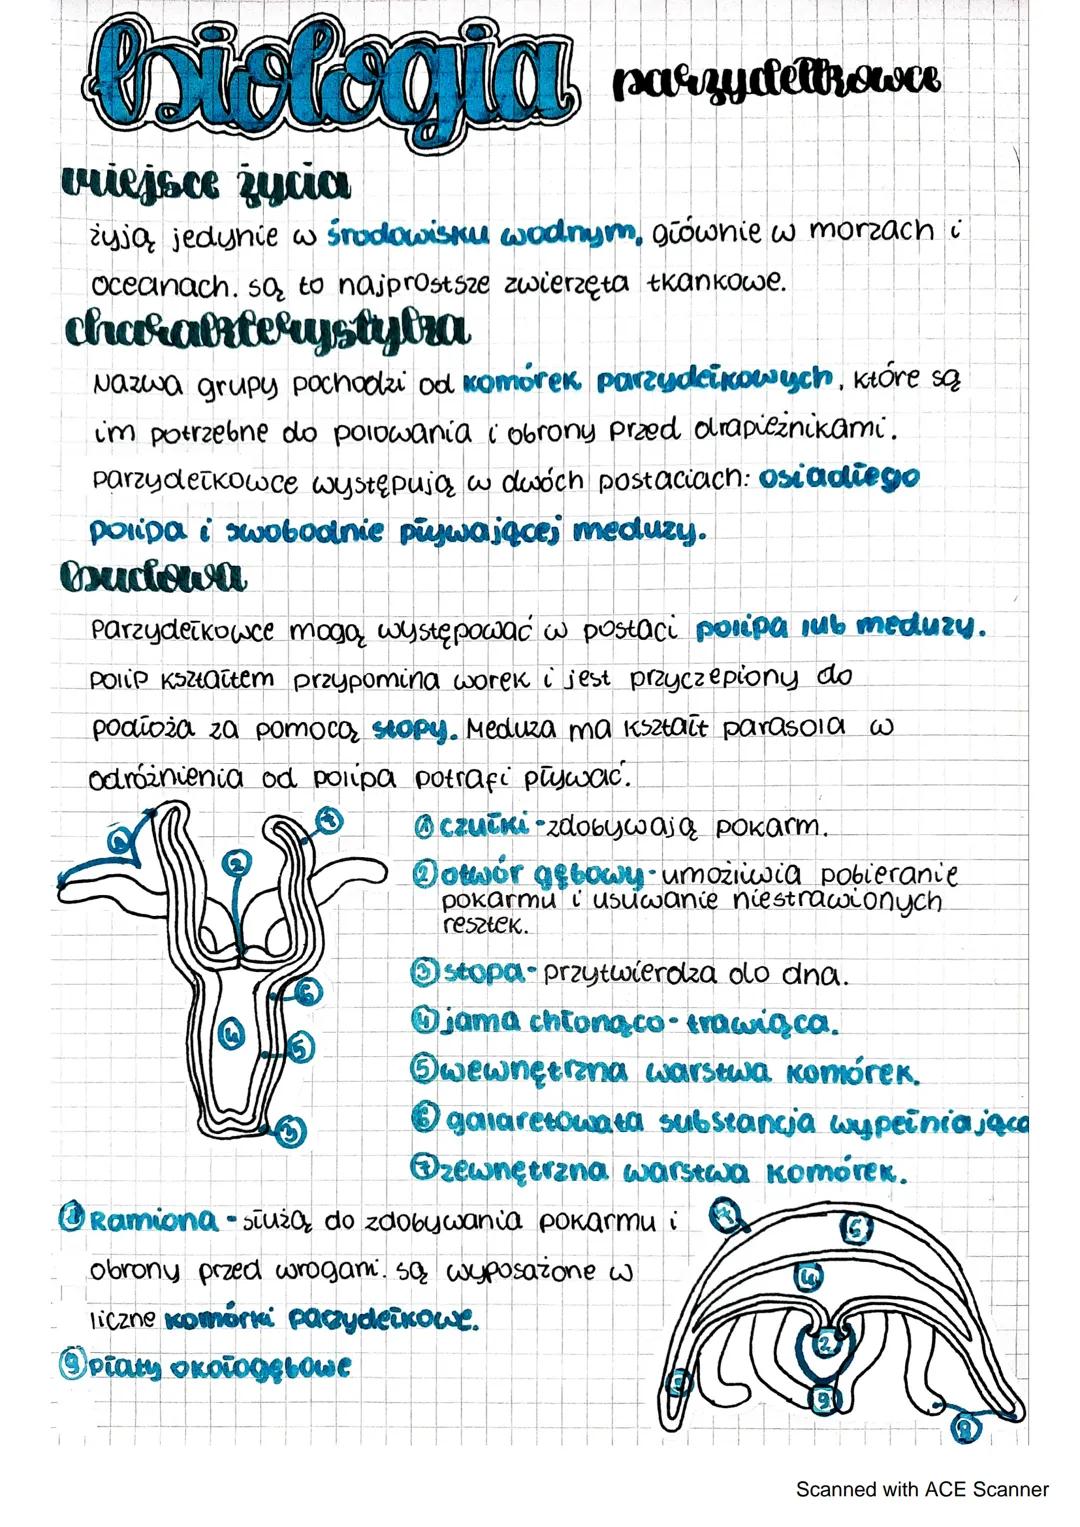 biologia parzydełkowce
miejsce życia
żyją jedynie w środowisku wodnym, głównie w morzach i
oceanach. są to najprostsze zwierzęta tkankowe.
charakterystyka
Nazwa grupy pochodzi od komórek parzydełkowych, które są
im potrzebne do polowania i obrony przed drapieżnikami.
parzydełkowce występują w dwóch postaciach: osiadłego
polipa i swobodnie pływającej meduzy.
budowa
Parzydełkowce mogą występować w postaci polipa lub meduzy.
Polip kształtem przypomina worek i jest przyczepiony do
podłoża za pomocą stopy. Meduza ma kształt parasola w
odróżnienia od polipa potrafi pływać.
① czułki - zdobywają pokarm.
② otwór gębowy - umożliwia pobieranie
pokarmu i usuwanie niestrawionych
resztek.
③ stopa - przytwierdza do dna.
④ jama chłonąco - trawiąca.
⑤ wewnętrzna warstwa komórek.
⑥ galaretowata substancja wypełniająca
⑦ zewnętrzna warstwa komórek.
1
2
7
6
4
5
3
⑧ Ramiona - służą do zdobywania pokarmu i
obrony przed wrogami. są wyposażone w
liczne komórki parzydełkowe.
⑨ płaty okołogębowe
7
6
4
2
9
8
Scanned with ACE Scanner